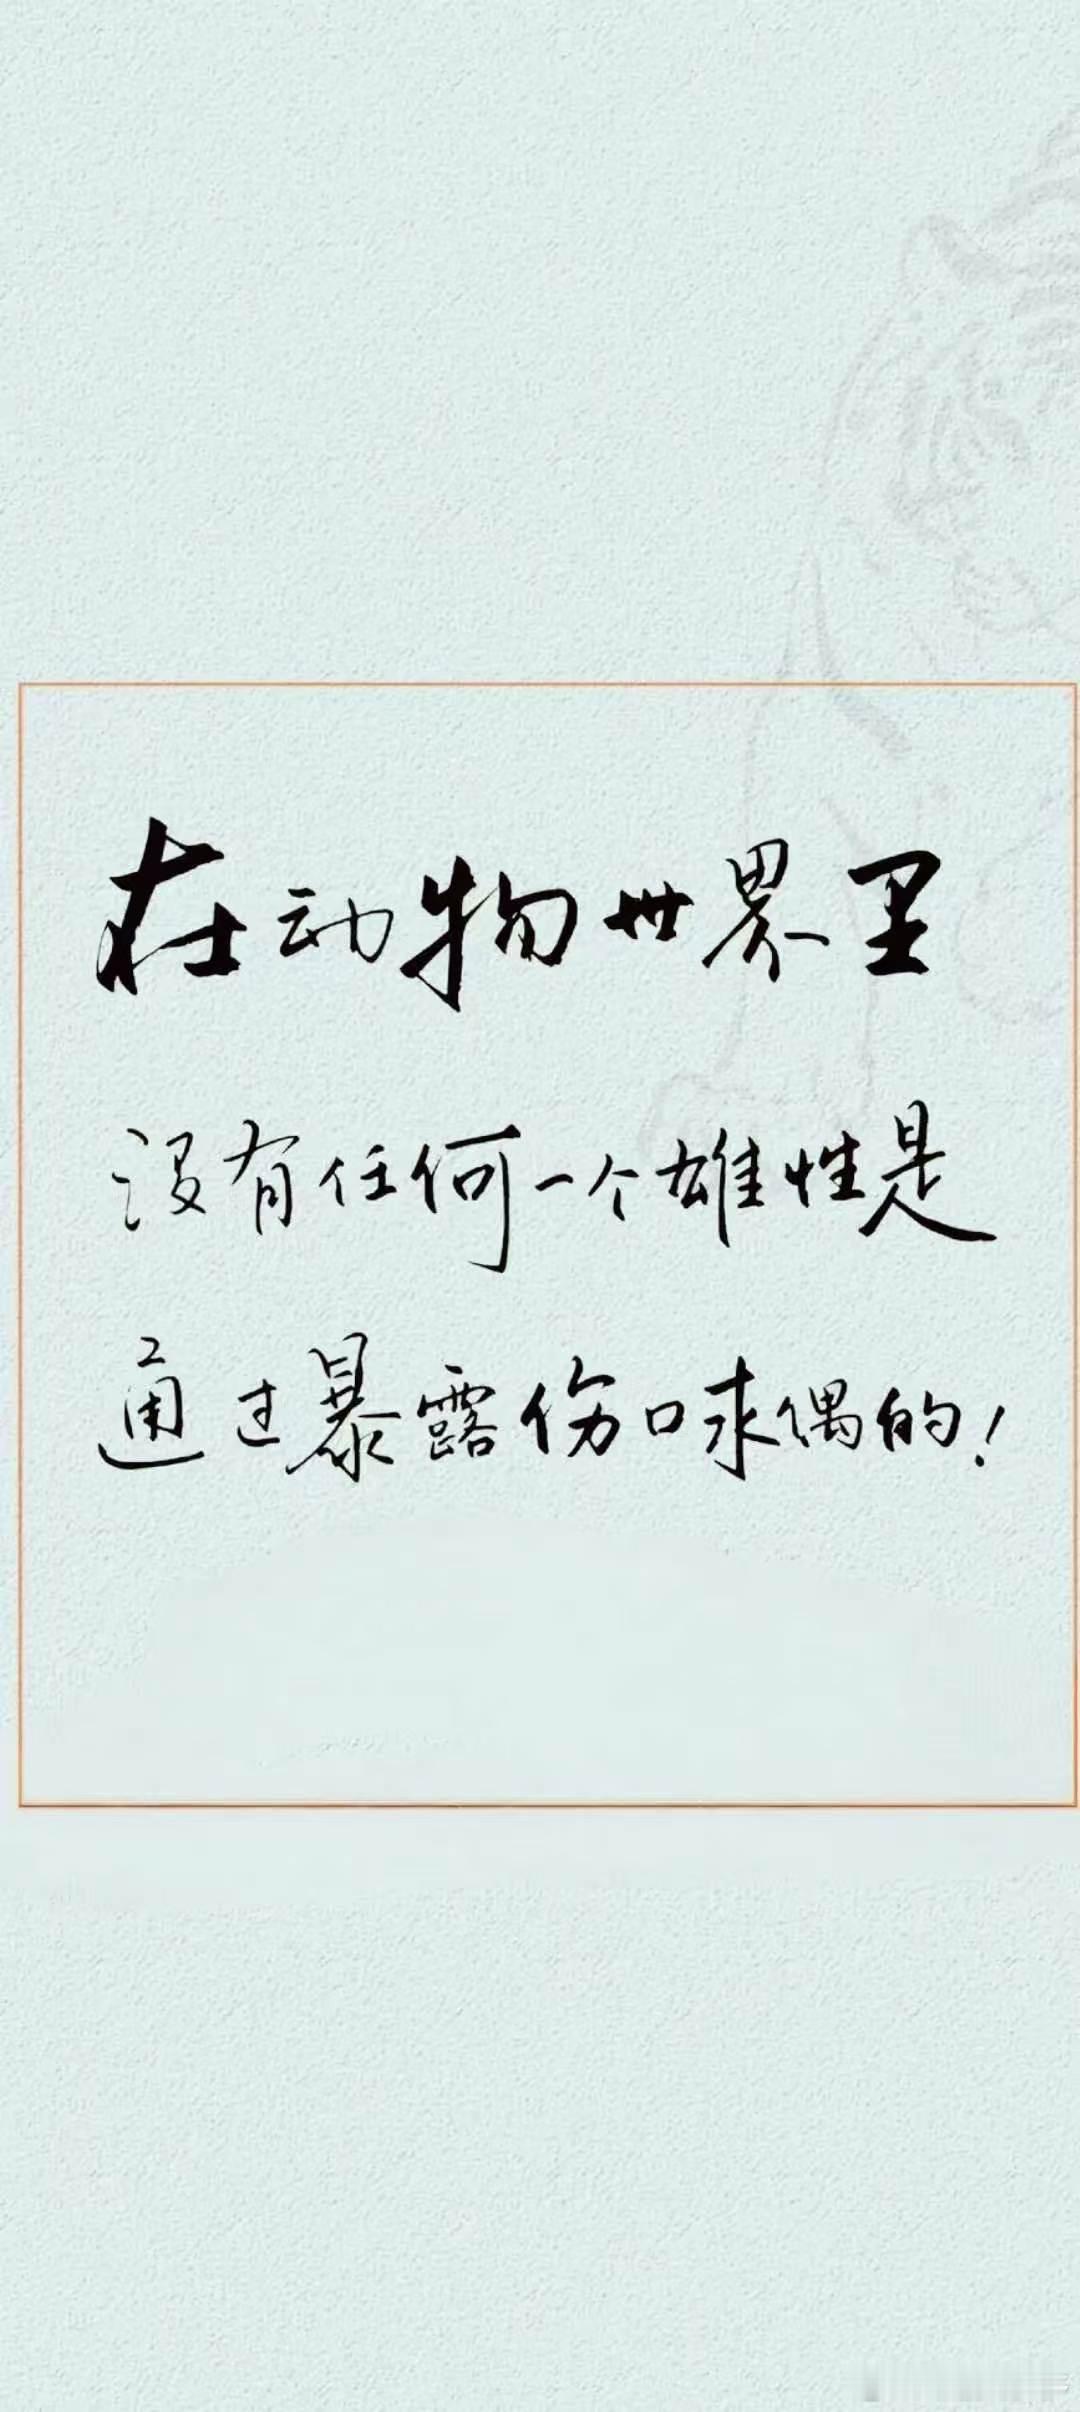 在动物世界里
没有任何一个雄性是
通过暴露伤口求偶的！